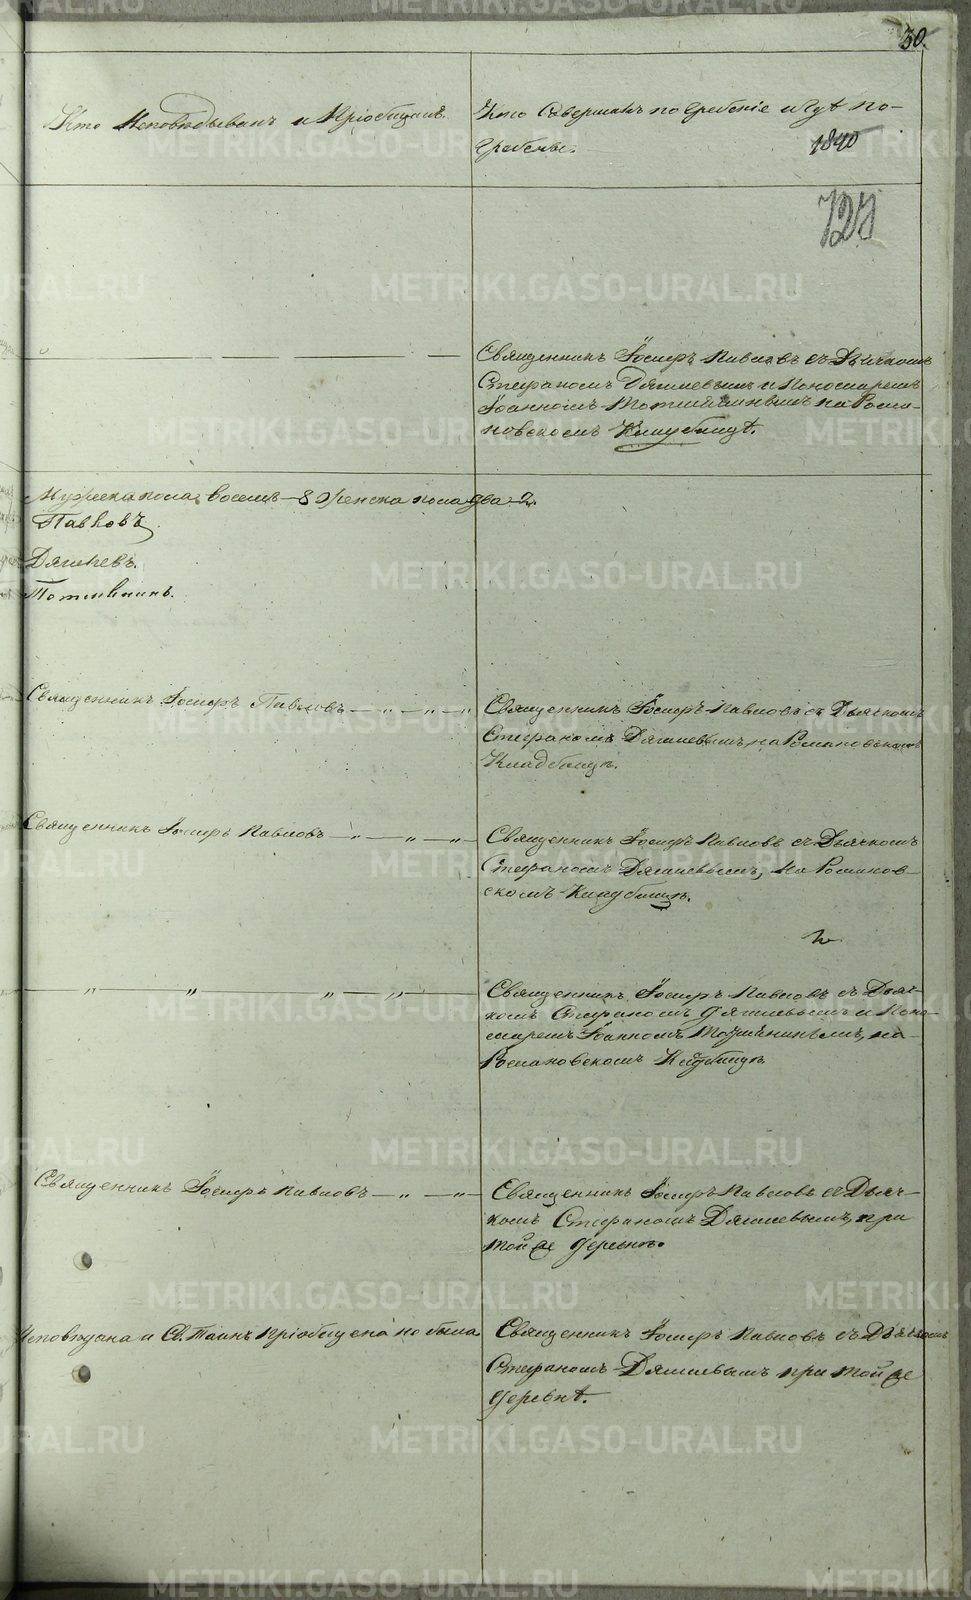 30.
Кто Исповѣдывалъ и Пріобщалъ.
Кто Совершалъ погребеніе и гдѣ по-
гребены.
1840
727
Священникъ Іосифъ Павловъ съ Дьячкомъ
Стефаномъ Дягилевымъ и Пономаремъ
Іоанномъ на Рома-
новскомъ Кладбищѣ.
Мужеска пола восемь - 8 Женска пола два - 2.
Павловъ
Дягилевъ.
Священникъ Іосифъ Павловъ — „ — „ — „
Священникъ Іосифъ Павловъ съ Дьячкомъ
Стефаномъ Дягилевымъ на Романовскомъ
Кладбищѣ.
Священникъ Іосифъ Павловъ — „ — „ — „
Священникъ Іосифъ Павловъ съ Дьячкомъ
Стефаномъ Дягилевымъ, на Романов-
скомъ Кладбищѣ.
Священникъ Іосифъ Павловъ съ Дьяч-
комъ Стефаномъ Дягилевымъ и Поно-
маремъ Іоанномъ на
Романовскомъ Кладбищѣ
Священникъ Іосифъ Павловъ — „ — „ —
Священникъ Іосифъ Павловъ съ Дьяч-
комъ Стефаномъ Дягилевымъ, при
той же деревнѣ.
Исповѣдана и Св. Таинъ пріобщена не была
Священникъ Іосифъ Павловъ съ Дьячкомъ
Стефаномъ Дягилевымъ при той же
деревнѣ.
METRIKI.GASO-URAL.RU